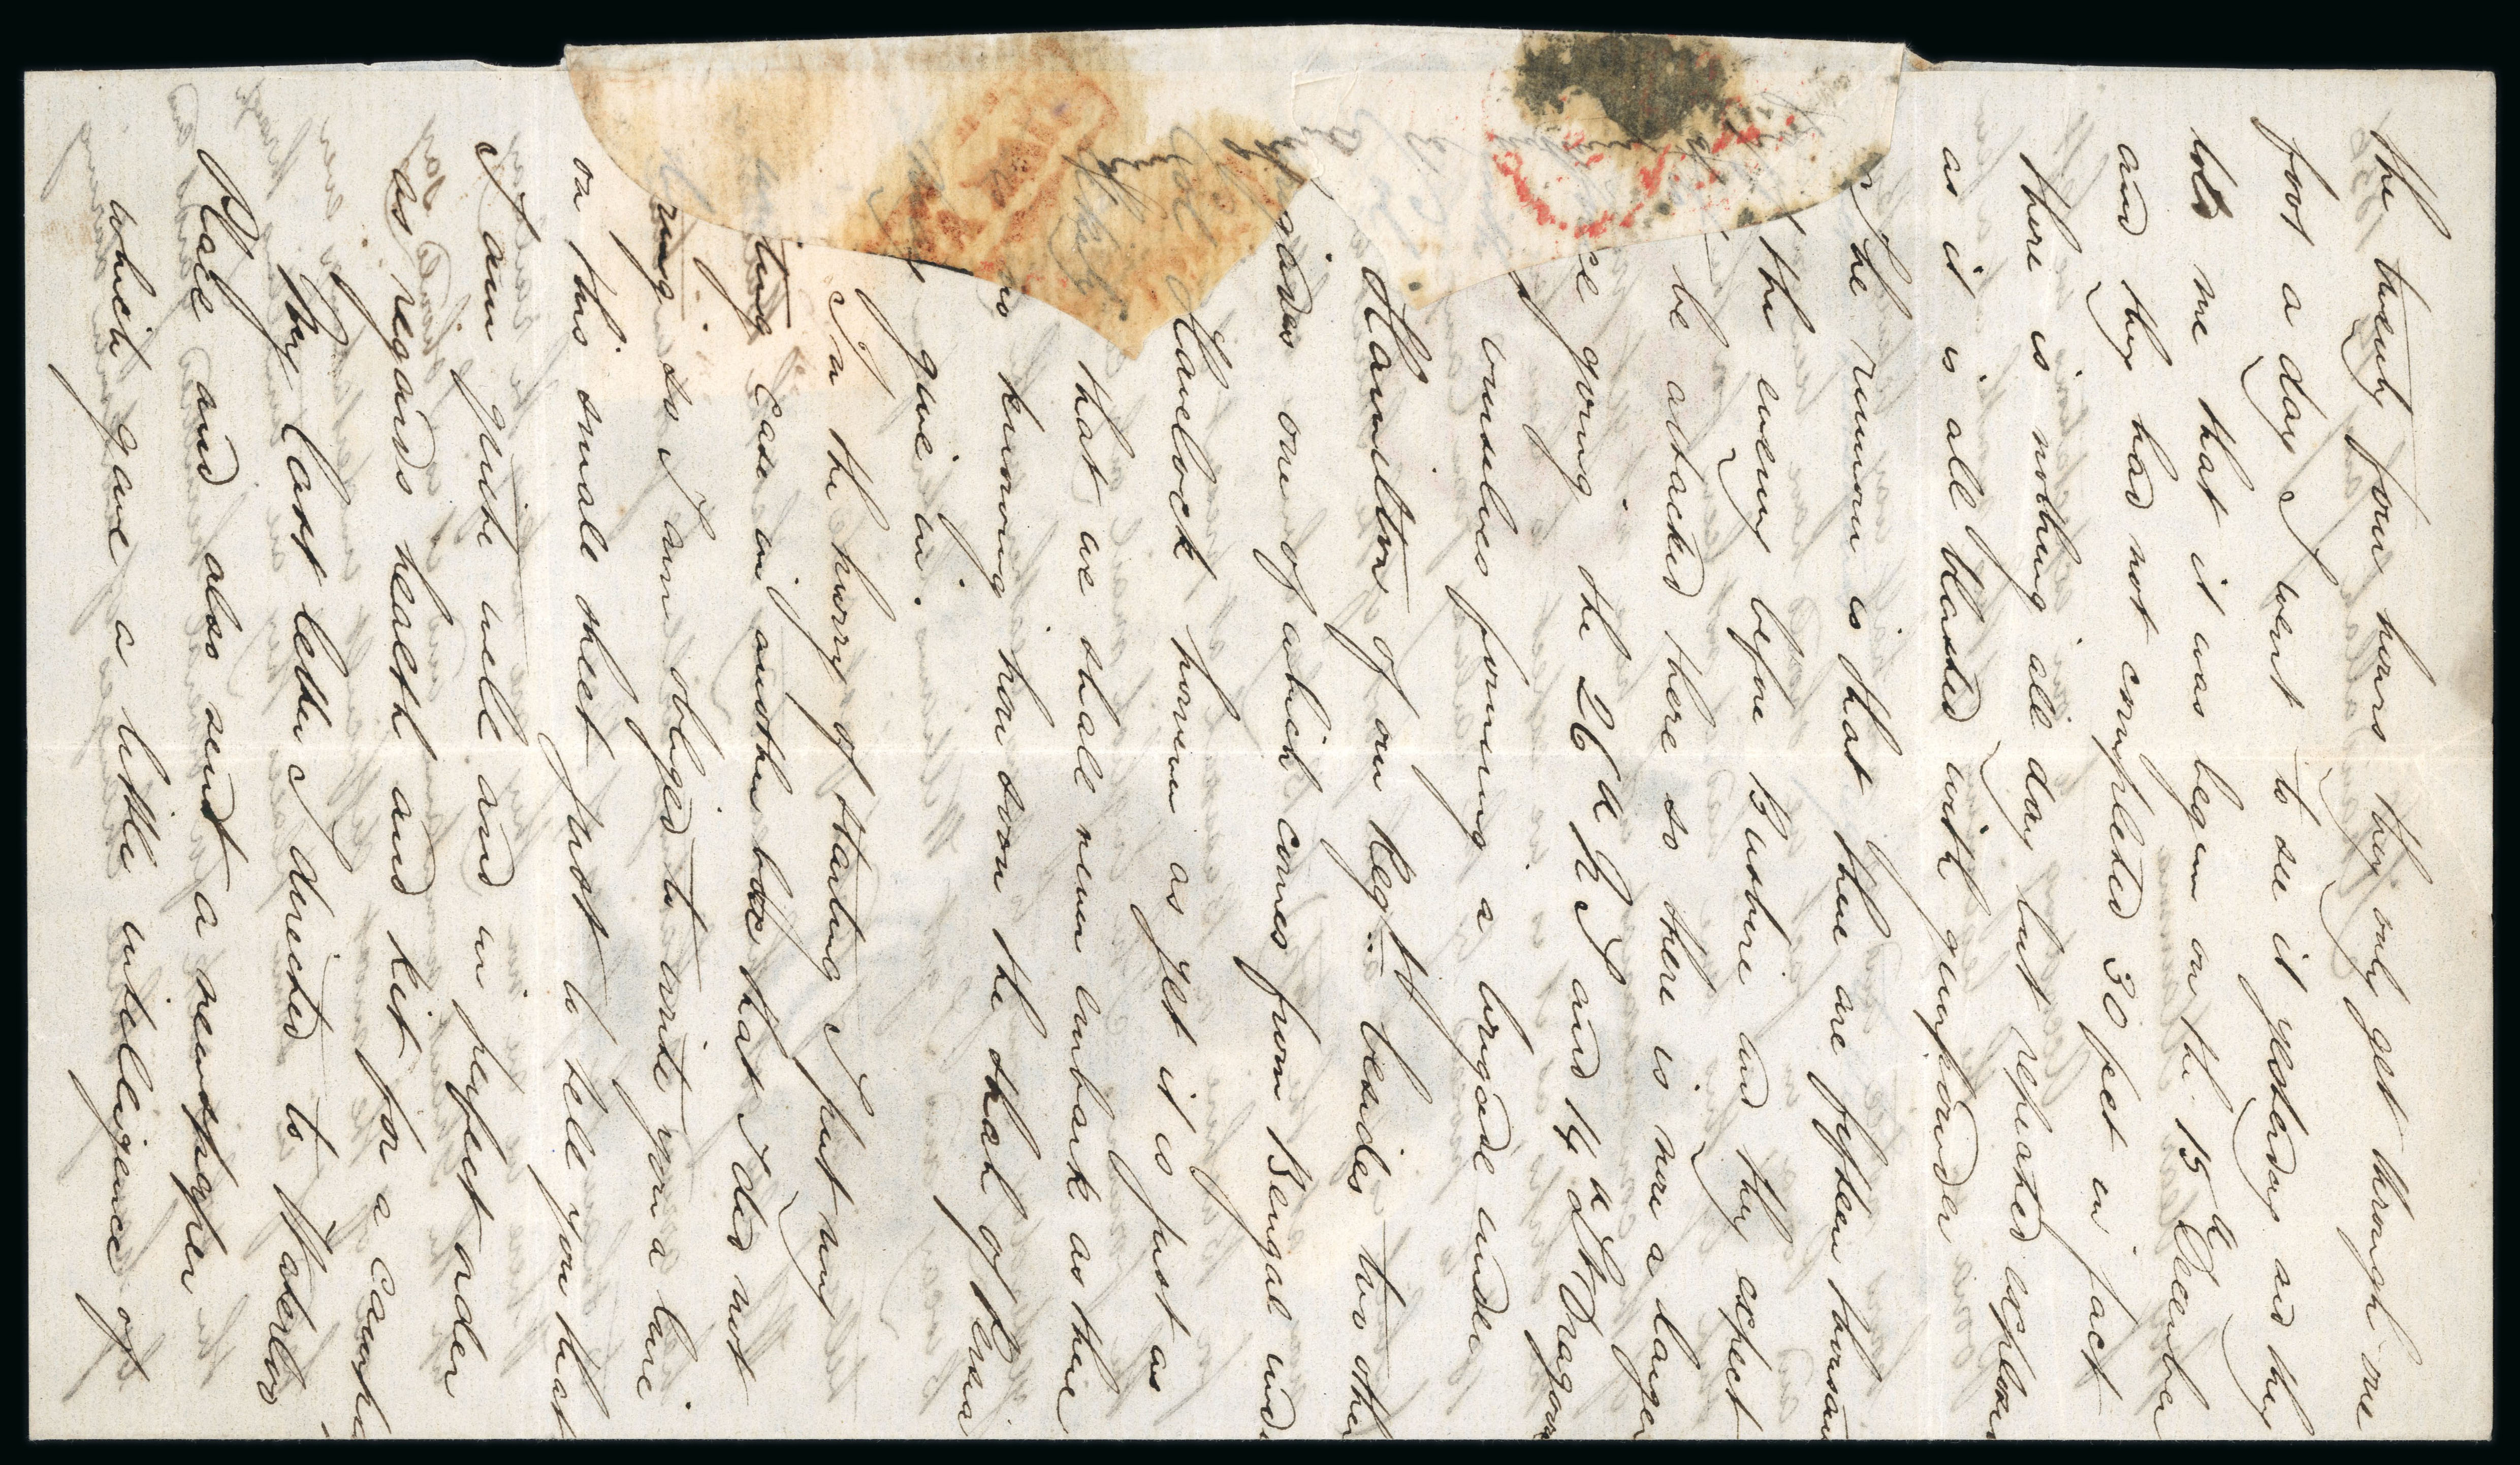 the twenty four hours they only get through one
foot a day I went to see it yesterday and they
told me that it was begun on the 15th December
and they had not completed 30 feet in fact
there is nothing all day but repeated explosions
as it is all blasted with gunpowder
The rumour is that there are fifteen thousand
the enemy before Bushire and they expect
be attacked there so there is now a larger
going the 26th N I and 14th Lt Dragoons
ourselves forming a brigade under
Hamilton of our Regt besides two other
one of which comes from Bengal under
Havelock however as yet it is just as
that we shall never embark as there
knowing how soon the Shah of Persia
give in.
In the hurry of starting I put my
ting case in another box that I did not
so I am obliged to write you a line
on this small sheet just to tell you that
I am quite well and in perfect order
as regards health and kit for a campaign
My last letter I directed to Waterloo
Place and also sent a newspaper
which gave a little intelligence of